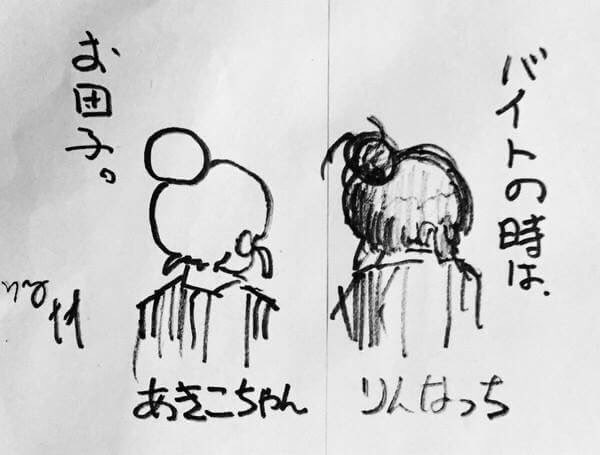 バイトの時は、
お団子。
りんはっち
あきこちゃん